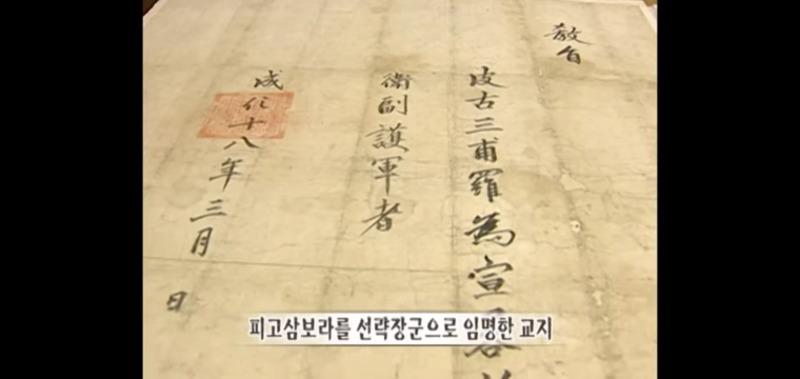 敎旨
皮古三甫羅為宣畧
衛副護軍者
成化十八年三月 日
피고삼보라를 선략장군으로 임명한 교지